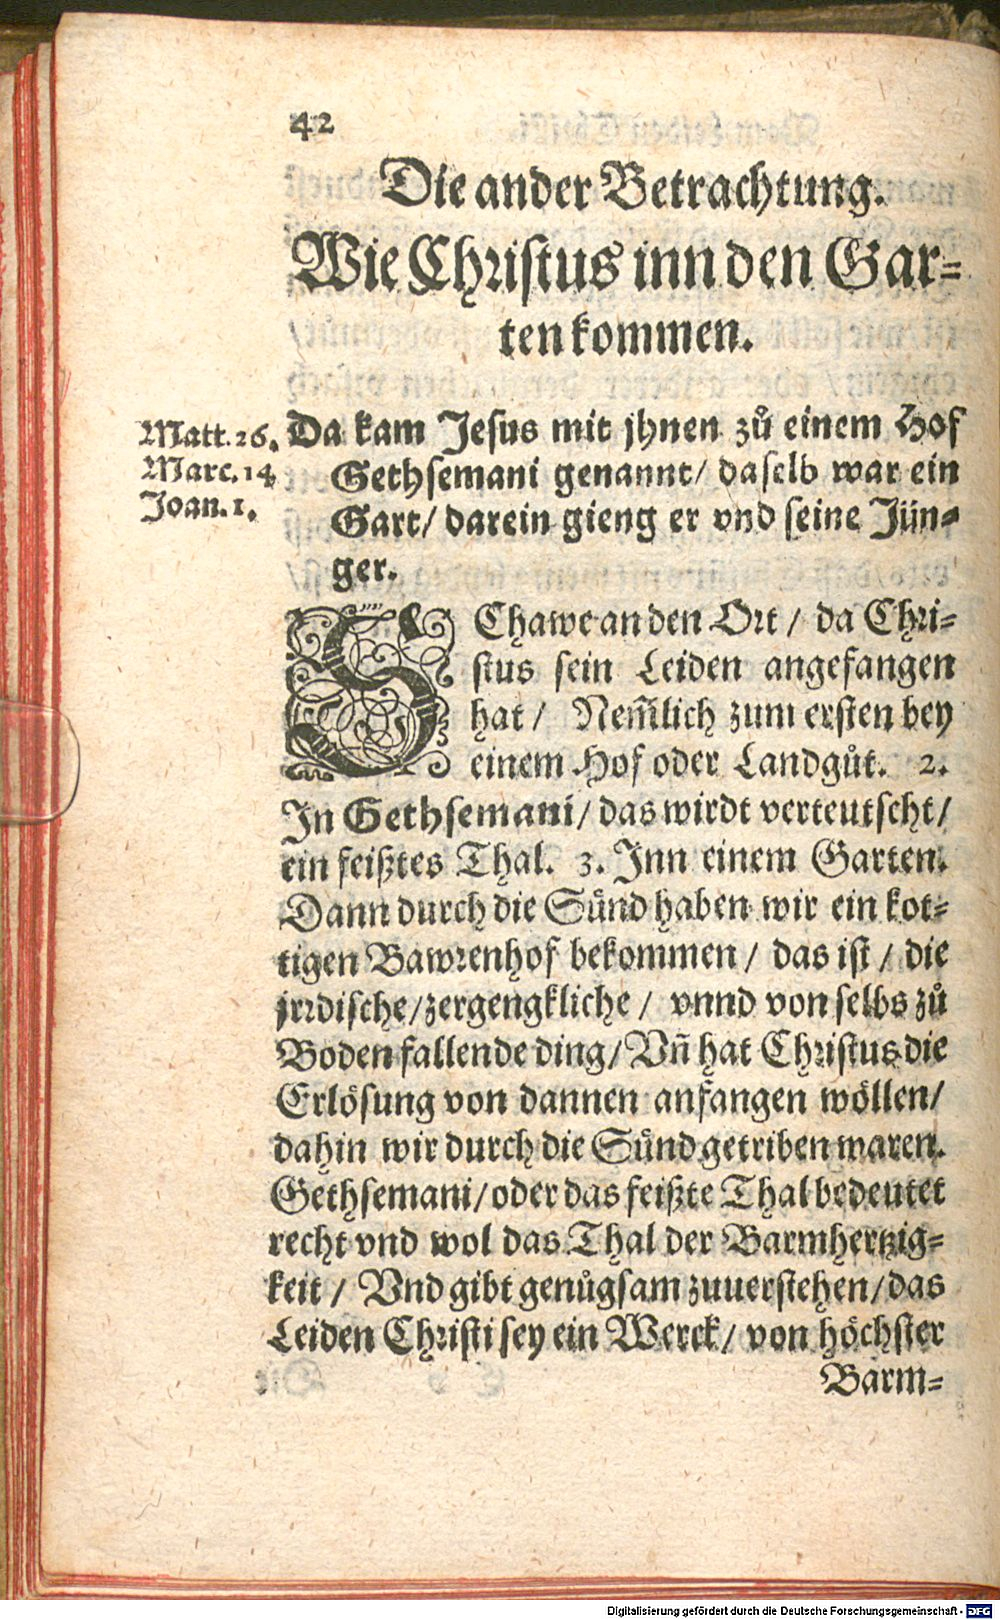 42
Die ander Betrachtung.
Wie Christus inn den Gar-
ten kommen.
Matt. 26.
Marc. 14
Joan. 1.
Da kam Jesus mit jhnen zů einem Hof
Gethsemani genannt/ daselb war ein
Gart/ darein gieng er vnd seine Jün-
ger.
SChawe an den Ort / da Chri-
stus sein Leiden angefangen
hat / Nem̃lich zum ersten bey
einem Hof oder Landgůt. 2.
In Gethsemani/ das wirdt verteutscht/
ein feißtes Thal. 3. Inn einem Garten.
Dann durch die Sünd haben wir ein kot-
tigen Bawrenhof bekommen / das ist / die
jrrdische/zergengkliche / vnnd von selbs zů
Boden fallende ding/ Vñ hat Christus die
Erlösung von dannen anfangen wöllen/
dahin wir durch die Sünd getriben waren.
Gethsemani/ oder das feißte Thal bedeutet
recht vnd wol das Thal der Barmhertzig-
keit / Vnd gibt genůgsam zuuerstehen/das
Leiden Christi sey ein Werck/ von höchster
Barm-
Digitalisierung gefördert durch die Deutsche Forschungsgemeinschaft - DFG